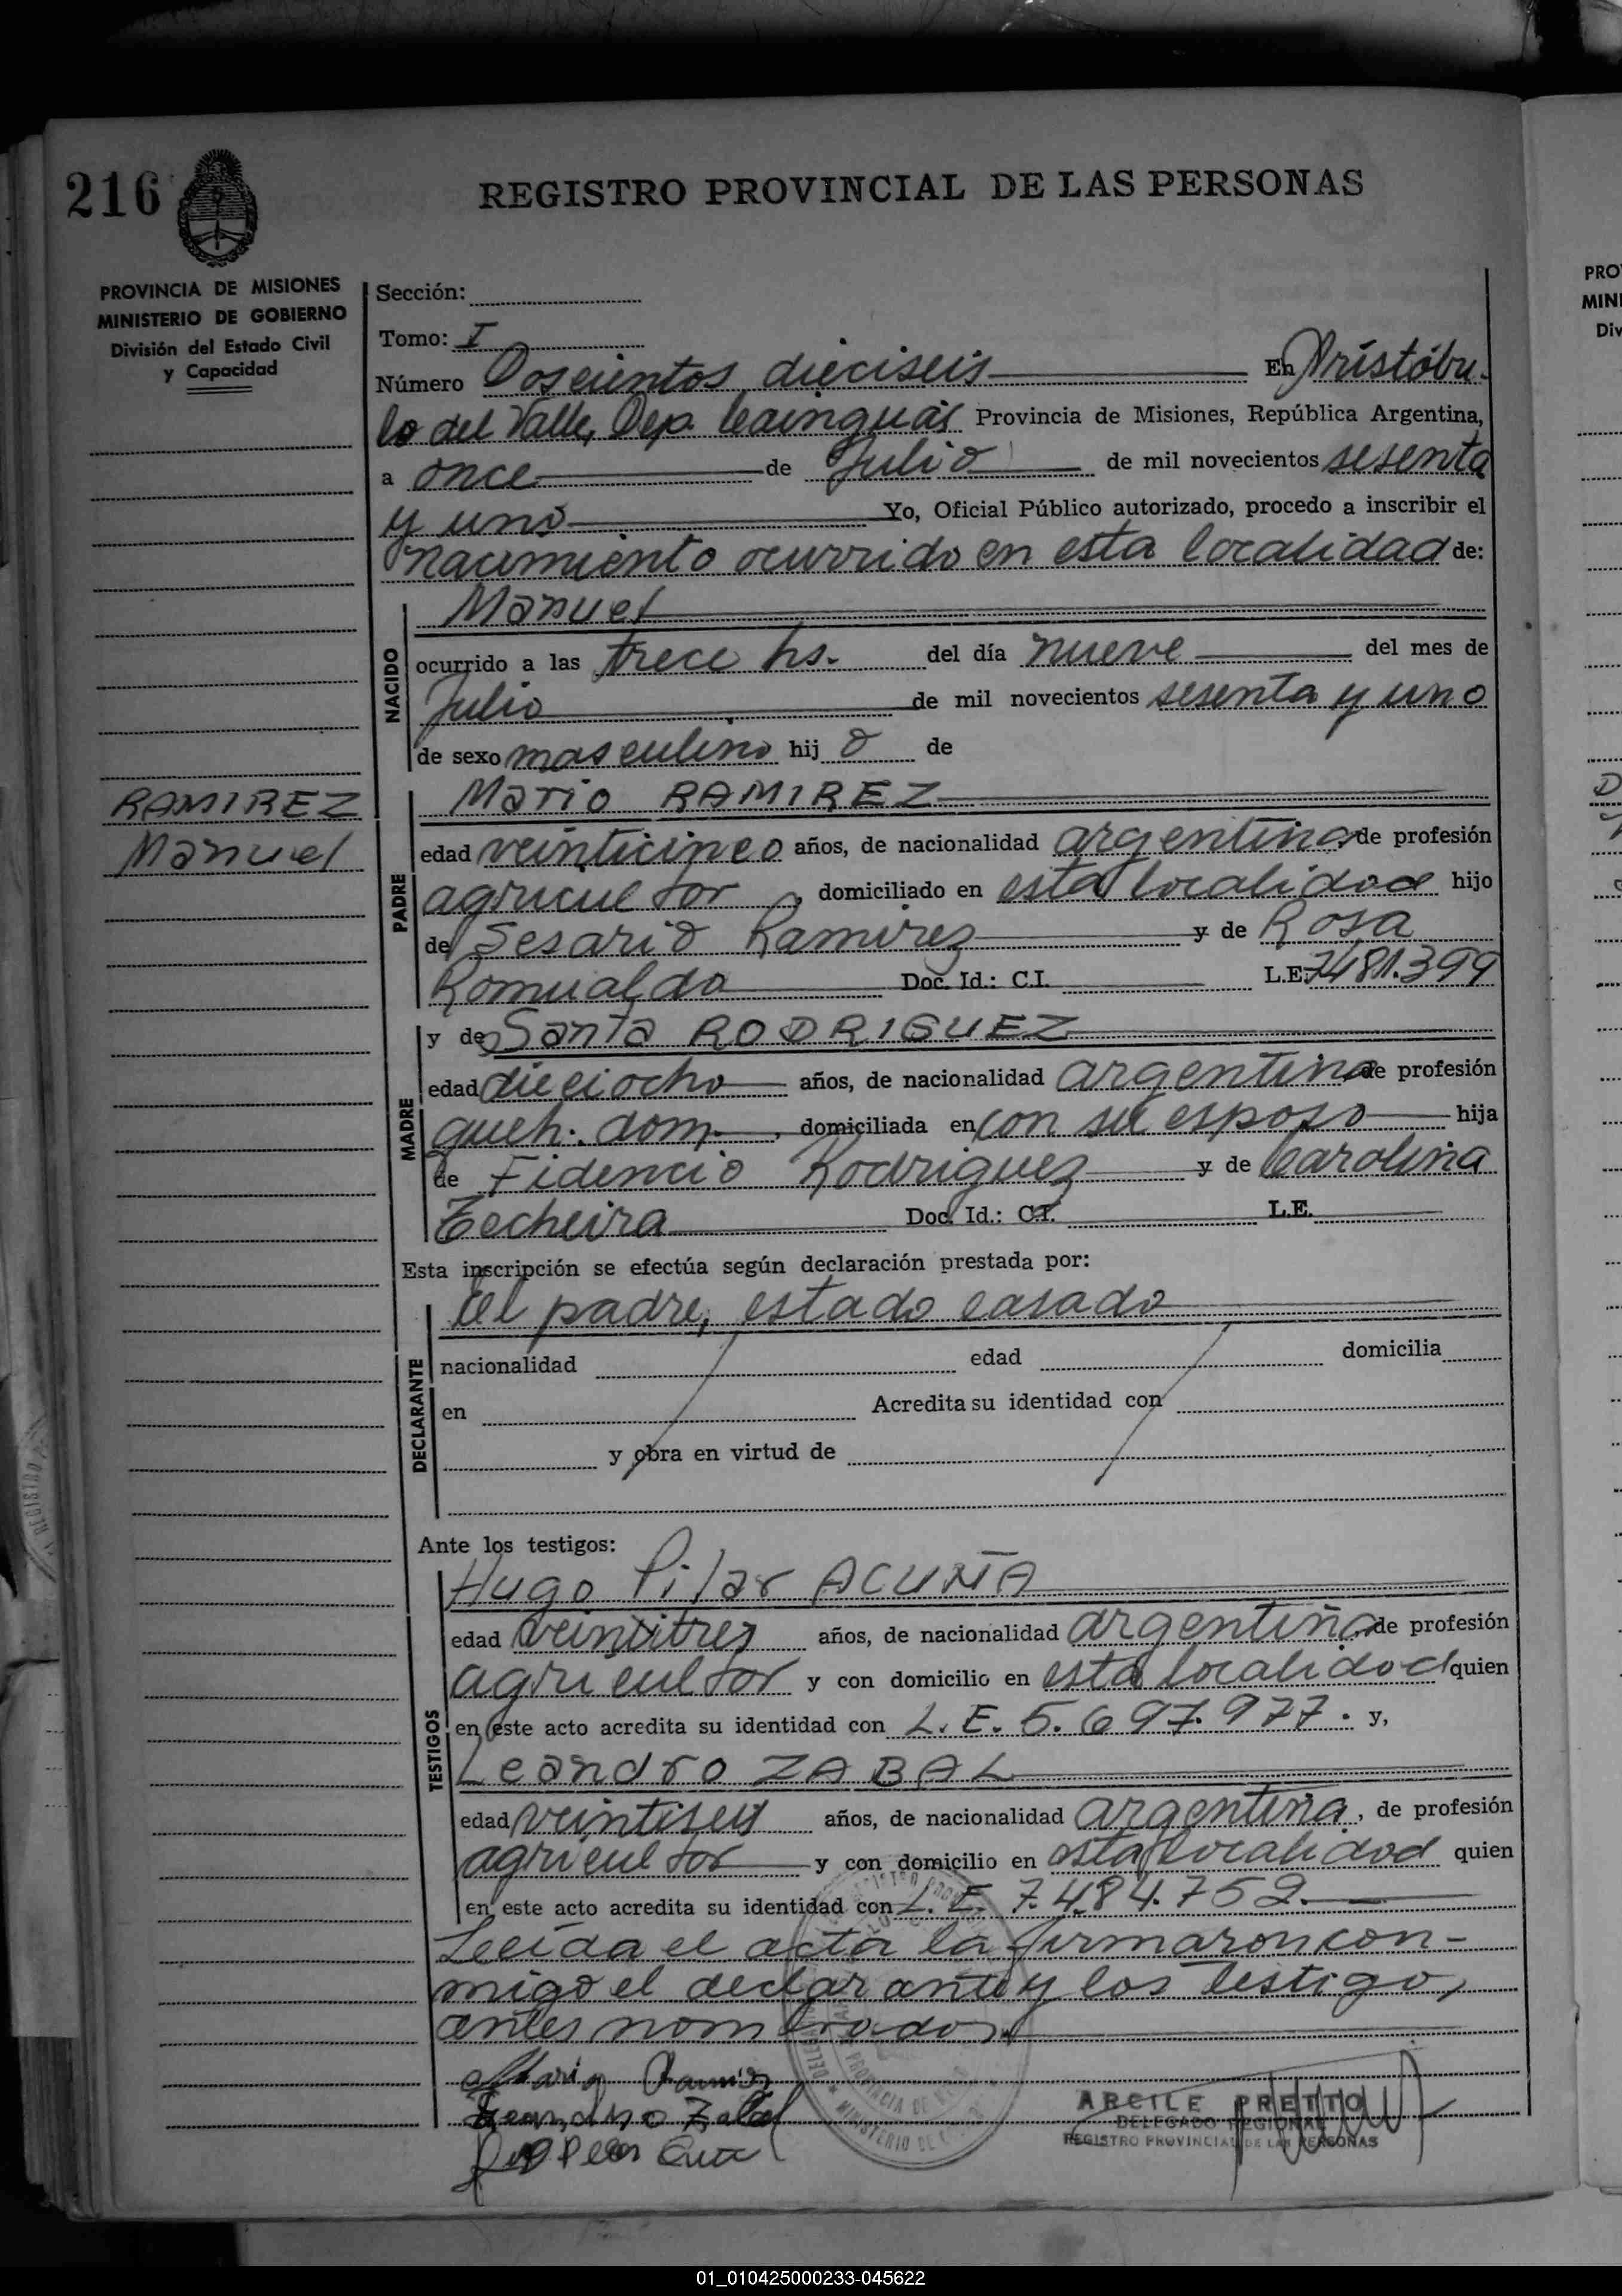 216
REGISTRO PROVINCIAL DE LAS PERSONAS
PROVINCIA DE MISIONES
MINISTERIO DE GOBIERNO
División del Estado Civil
y Capacidad
Sección:
Tomo: I
Número Doscientos dieciseis En Aristóbu-
lo del Valle, Dep. Cainguás Provincia de Misiones, República Argentina,
a once de Julio de mil novecientos sesenta
y uno Yo, Oficial Público autorizado, procedo a inscribir el
nacimiento ocurrido en esta localidad de:
NACIDO
Manuel
ocurrido a las trece hs. del día nueve del mes de
Julio de mil novecientos sesenta y uno
de sexo masculino hij o de
RAMIREZ
Manuel
PADRE
Mario RAMIREZ
edad veinticinco años, de nacionalidad argentina de profesión
agricultor, domiciliado en esta localidad hijo
de Sesario Ramirez y de Rosa
Romualda Doc. Id.: C.I. L.E. 7481.399
MADRE
y de Santa RODRIGUEZ
edad dieciocho años, de nacionalidad argentina de profesión
queh. dom., domiciliada en con su esposo hija
de Fidencio Rodriguez y de Carolina
Techeira Doc. Id.: C.I. L.E.
Esta inscripción se efectúa según declaración prestada por:
DECLARANTE
el padre, estado casado
nacionalidad edad domicilia
en Acredita su identidad con
y obra en virtud de
Ante los testigos:
TESTIGOS
Hugo Pilar ACUÑA
edad veintitres años, de nacionalidad argentina de profesión
agricultor y con domicilio en esta localidad quien
en este acto acredita su identidad con L. E. 5.697.977. y,
Leandro ZABAL
edad veintiseis años, de nacionalidad argentina, de profesión
agricultor y con domicilio en esta localidad quien
en este acto acredita su identidad con L. E. 7.484.752.
Leeida el acta la firmaron con-
migo el declarante y los testigo,
antes nombrados.
Mario Ramirez
Leandro Zabal
ARCILE PRETTO
DELEGADO REGIONAL
REGISTRO PROVINCIAL DE LAS PERSONAS
PRO
MINI
Div
01_010425000233-045622